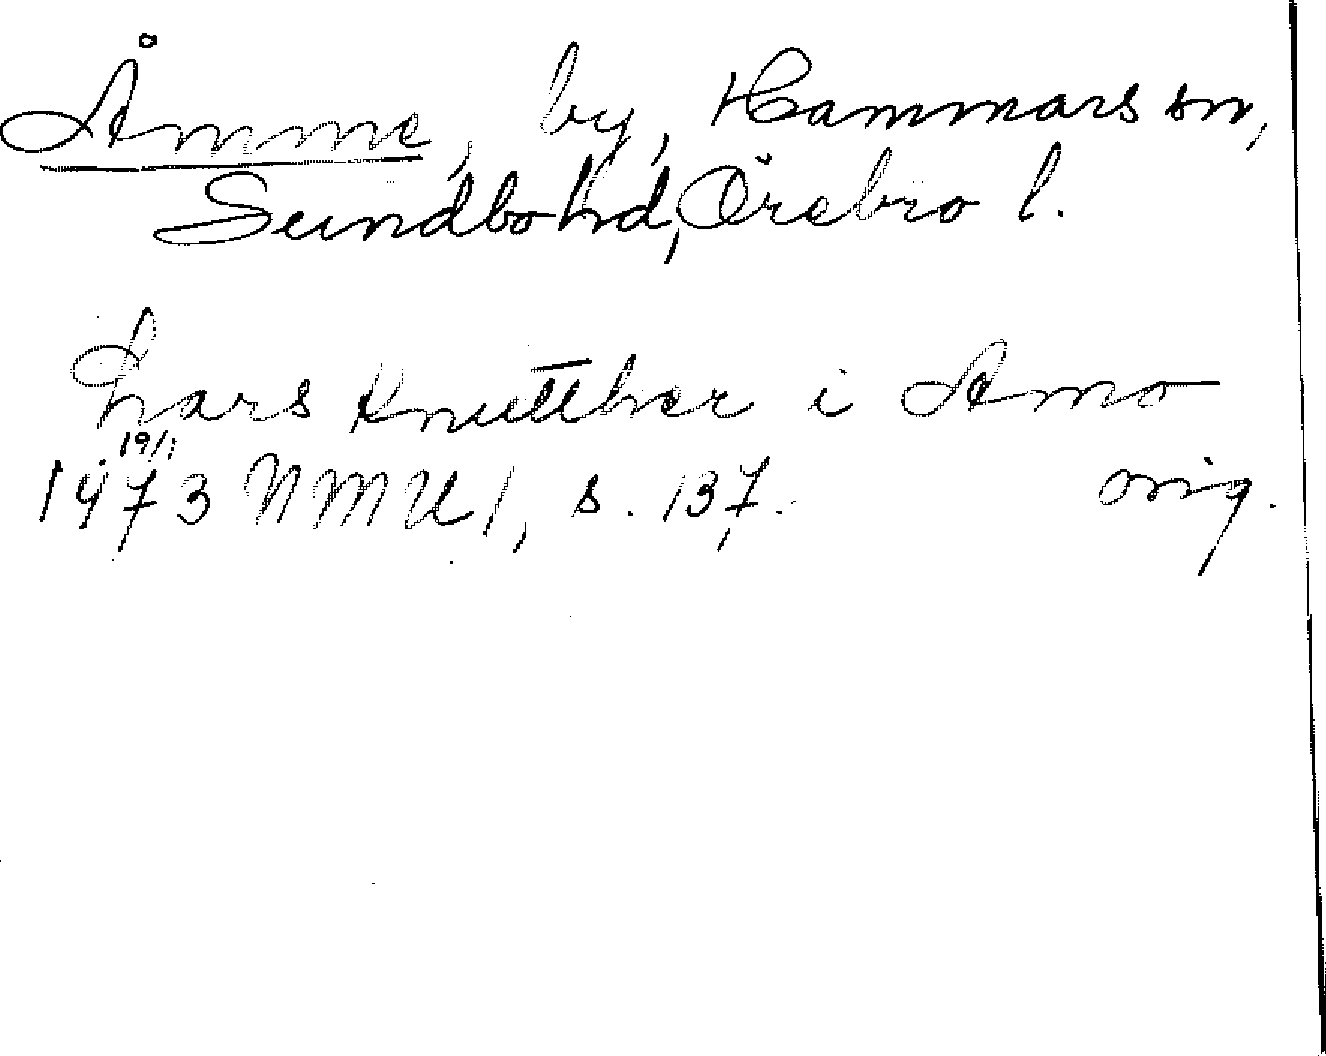 Åmme, by, Hammars sn,
Sundbo hd, Örebro l.
Lars knutther i Amo
19/1
1473 NMU 1, s. 137. orig.